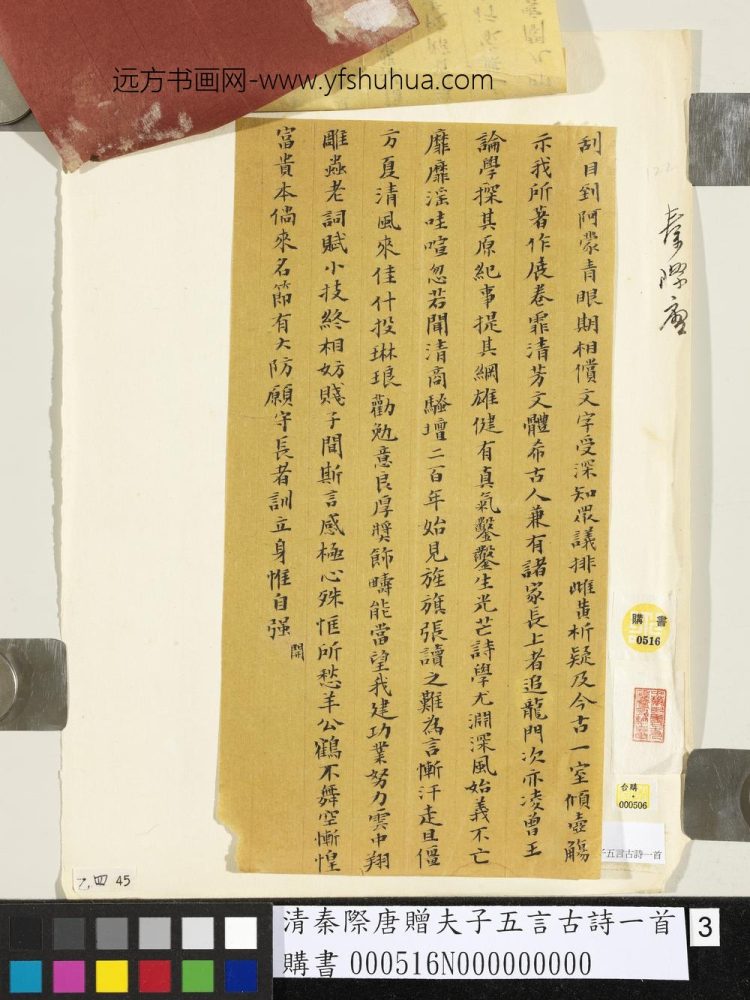 远方书画网-www.yfshuhua.com
刮目到阿蒙青眼期相償文字受深知眾議排雌黄析疑及今古一室傾壺觴
示我所著作展卷霏清芳文體希古人兼有諸家長上者追龍門次亦凌曾王
論學探其原紀事提其綱雄健有真氣鑿鑿生光芒詩學尤淵深風始義不亡
靡靡淫哇喧忽若聞清商騷壇二百年始見旌旗張讀之難為言慚汗走且僵
方夏清風來佳什投琳琅勸勉意良厚獎飾疇能當望我建功業努力雲中翔
雕蟲老詞賦小技終相妨賤子聞斯言感極心殊恇所愁羊公鶴不舞空慚惶
富貴本倘來名節有大防願守長者訓立身惟自强
開
秦際唐
購書
0516
台購
000506
子五言古詩一首
乙,四 45
清秦際唐贈夫子五言古詩一首
購書 000516N000000000
3